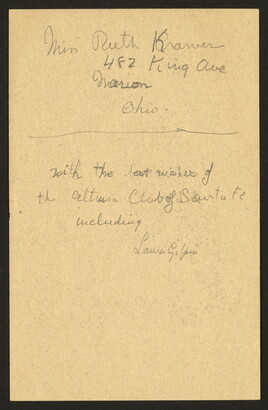 Miss Ruth Kramer
482 King Ave
Marion
Ohio -
with the best wishes of
the Altrusa Club of Santa Fe
including
Laura Gilpin